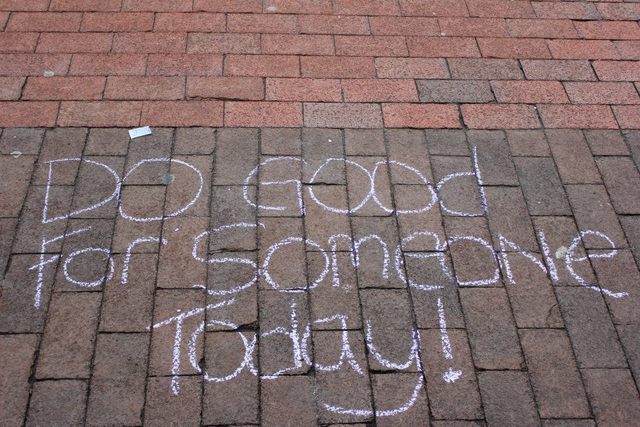 Do Good
For Someone
Today!